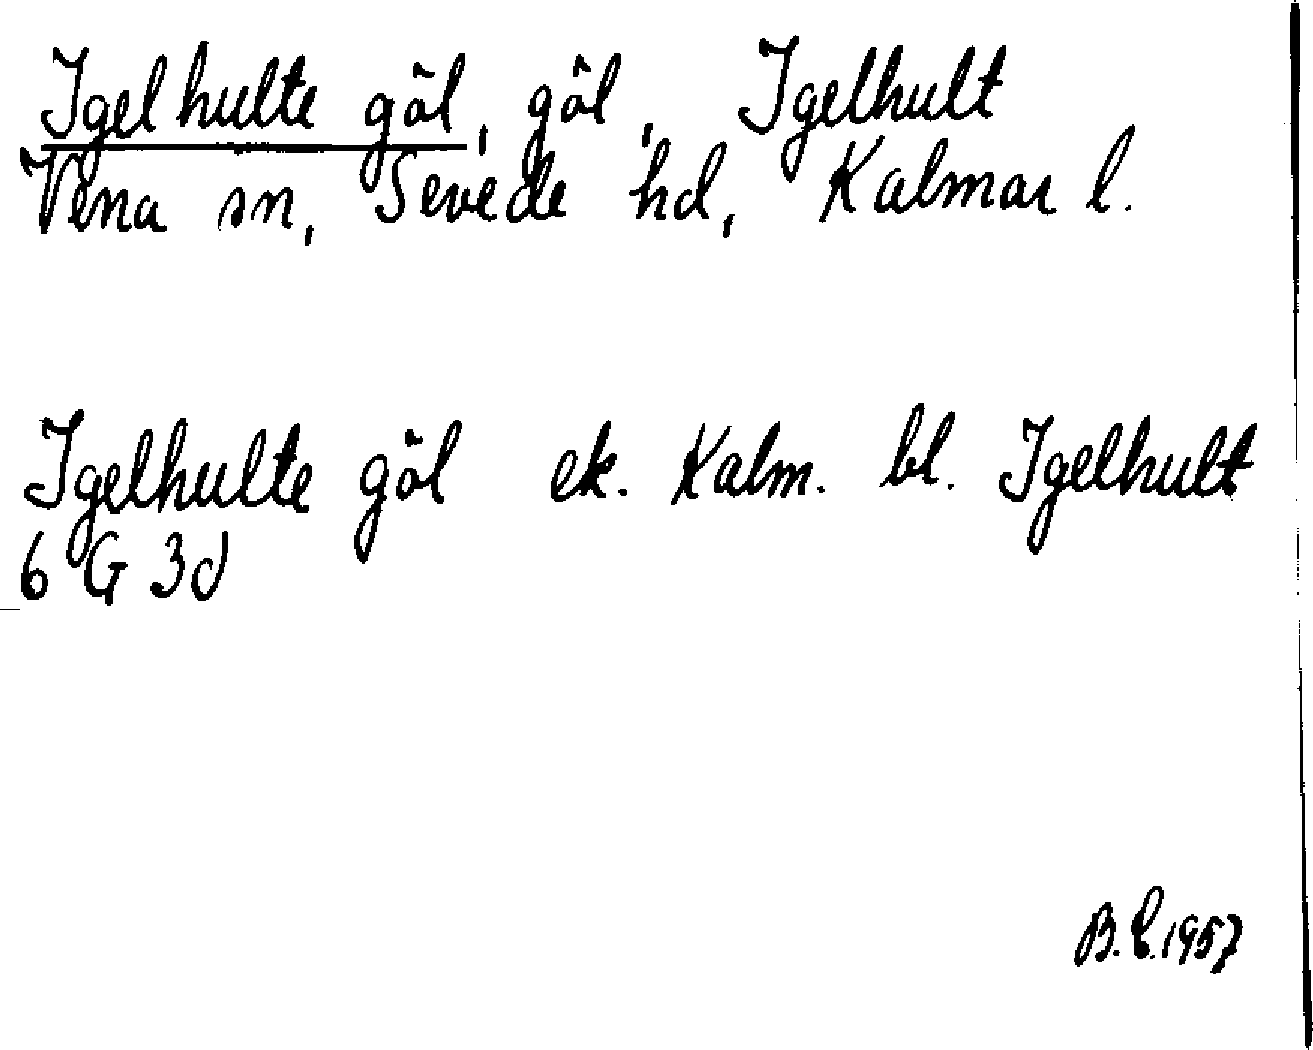 Igelhulte göl, göl, Igelhult
Vena sn, Sevede hd, Kalmar l.
Igelhulte göl ek. Kalm. bl. Igelhult
6 G 3d
B. E. 1957